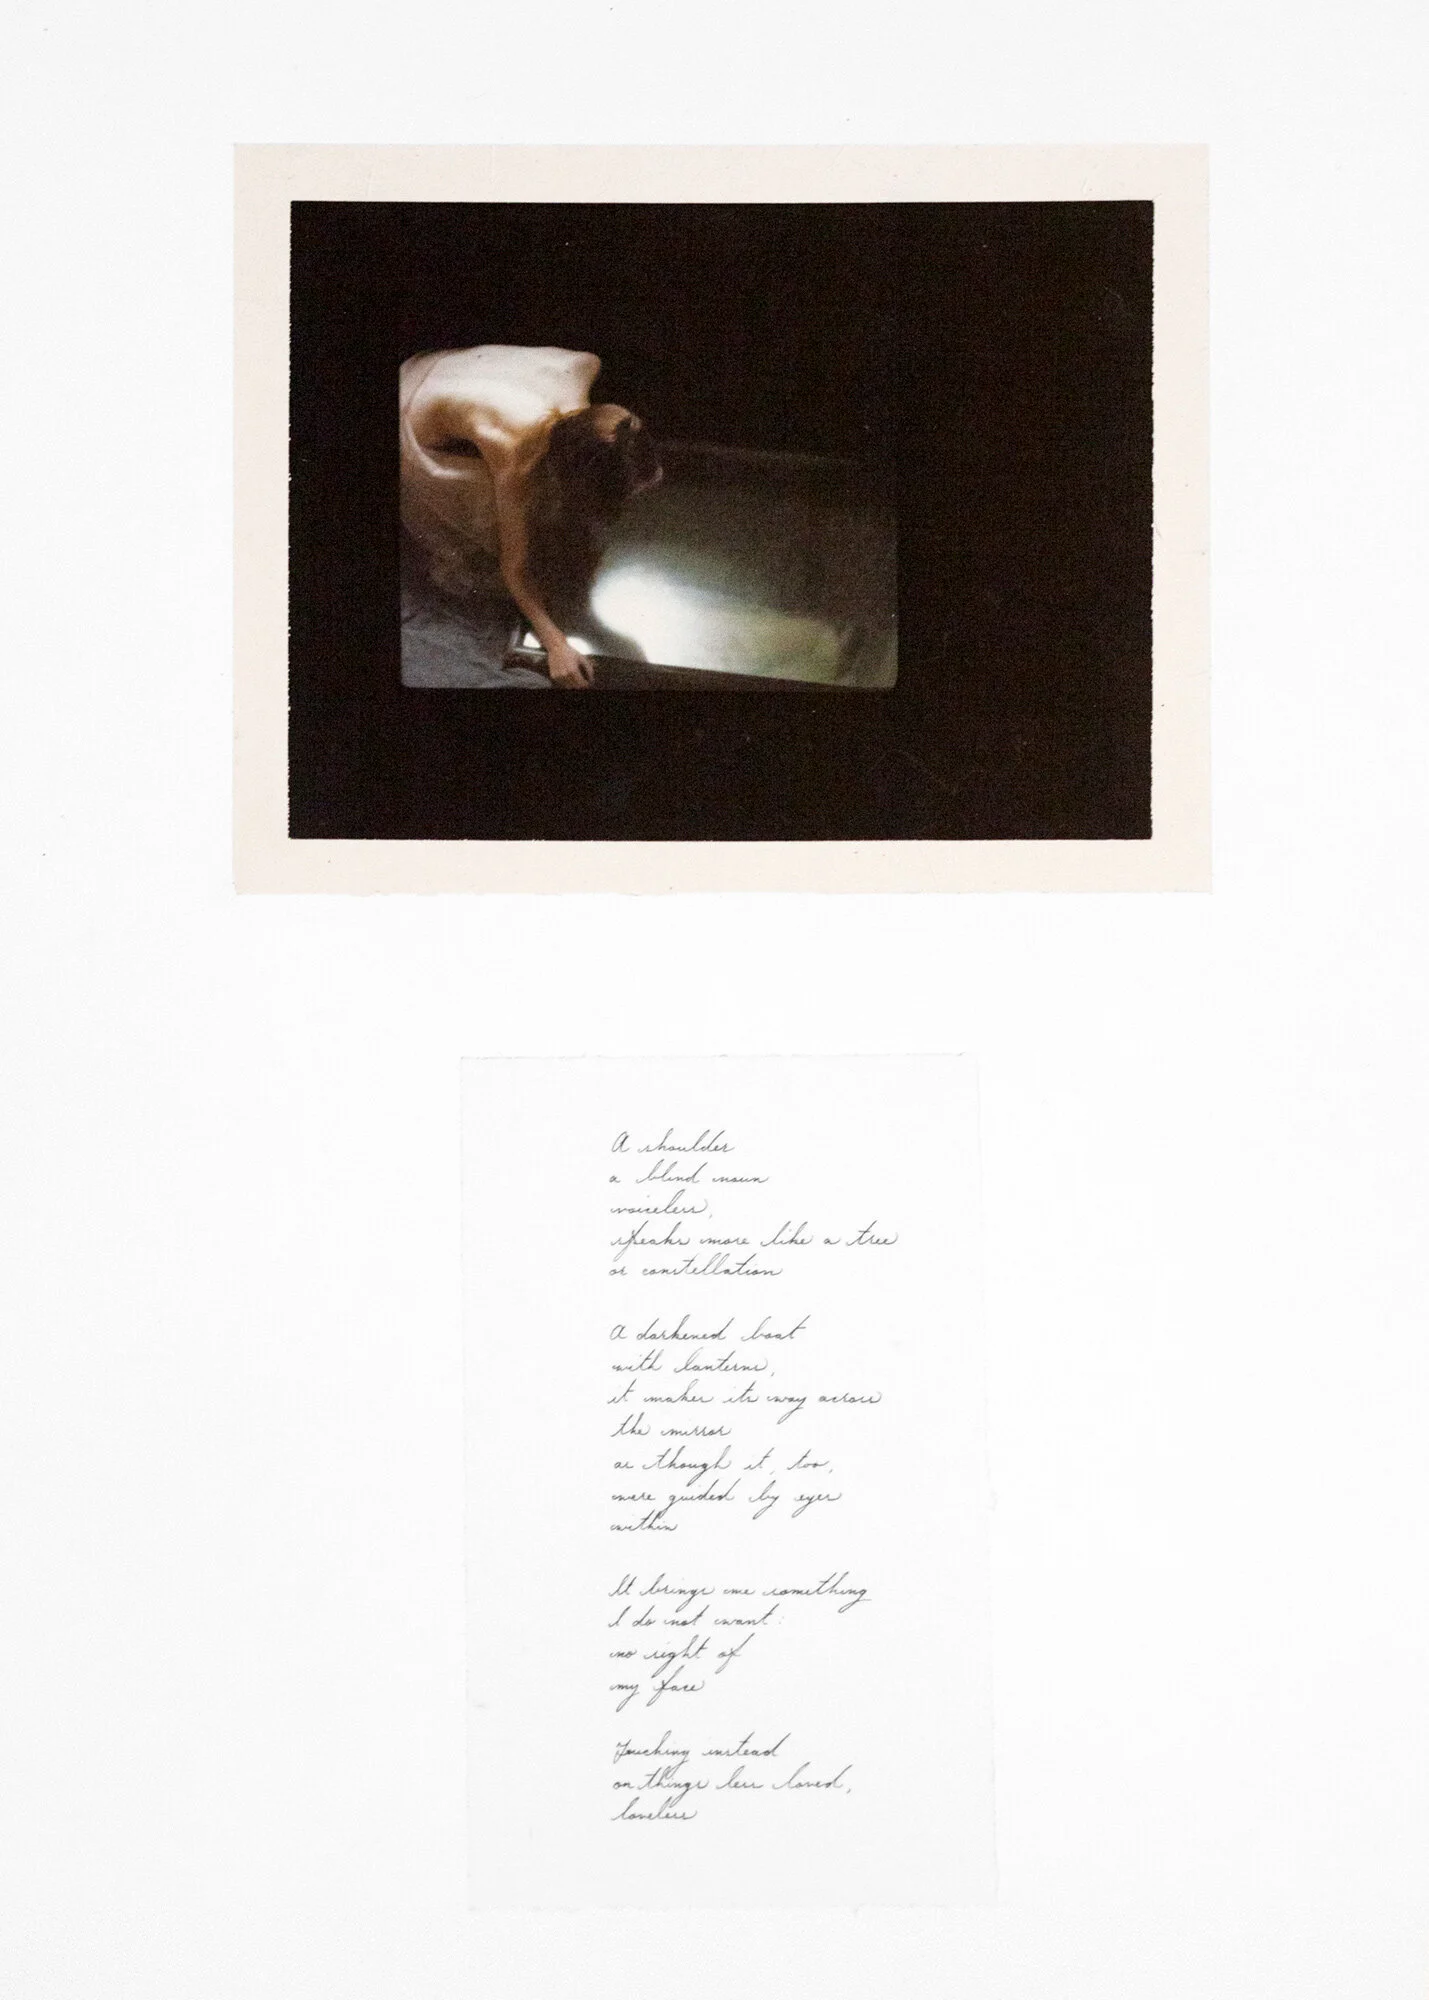 A shoulder
a blind noun
voiceless,
speaks more like a tree
or constellation
A darkened boat
with lanterns,
it makes its way across
the mirror
as though it, too,
were guided by eyes
within
It brings me something
I do not want:
no sight of
my face
Touching instead
on things less loved,
loveless